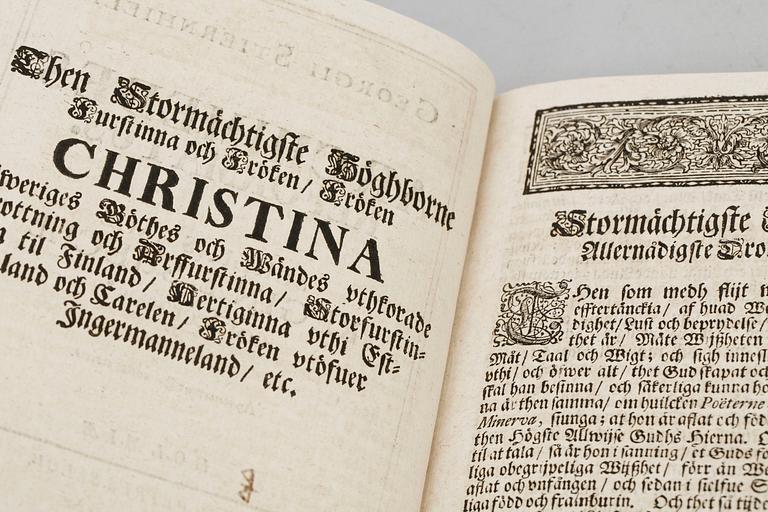 Then Stormächtigste Höghborne
Furstinna och Fröken / Fröken
CHRISTINA
Göthes och Wändes vthkorade
och Arffurstinna / Storfurstin-
til Finland / Hertiginna vthi Est-
land och Carelen / Fröken vtöfuer
Ingermanneland / etc.
Stormächtigste
Allernådigste
THen som medh flijt
efftertänckia / af huad
dighet / Lust och beprydelse /
thet är / Mäte Wijßheten
Mät / Taal och Wigt; och sigh
vthi / och öfwer alt / thet Gud skapat
skal han besinna / och säkerliga kunna
na är then samma / om huilcken Poëterne
Minerva, siunga; at hon är aflat och
then Högste Allwijse Gudhs Hierna.
til at tala / så är hon i sanning / et Guds
liga obegrijpeliga Wijßhet / förr än
aflat och vnfången / och sedan i sielfue
liga född och framburin. Och thet så